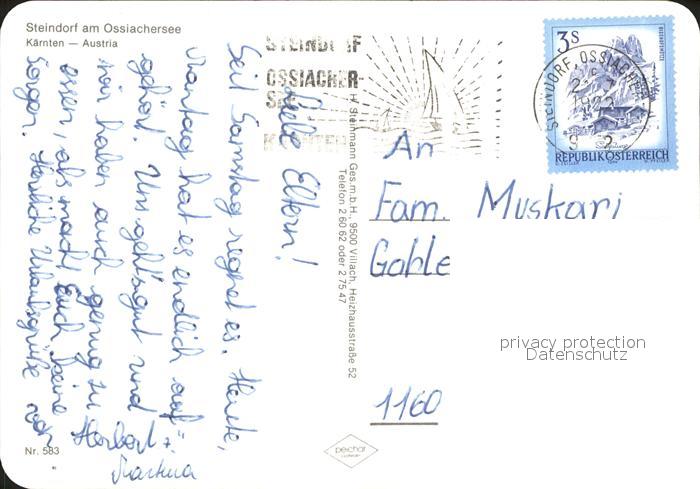 Steindorf am Ossiachersee
Kärnten — Austria
STEINDORF
OSSIACHER-
SEE
KÄRNTEN
3 S
STEINDORF OSSIACHERSEE
REPUBLIK ÖSTERREICH
Liebe Eltern!
Seit Samstag regnet es. Heute,
Montag hat es endlich auf=
gehört. Uns geht's gut und
wir haben auch genug zu
essen, also macht Euch keine
Sorgen. Herzliche Urlaubsgrüße von
Herbert +
Martina
H. Steinmann Ges.m.b.H., 9500 Villach, Heizhausstraße 52
Telefon 2 60 62 oder 2 75 47
An
Fam. Muskari
Gable
1160
privacy protection
Datenschutz
Nr. 583